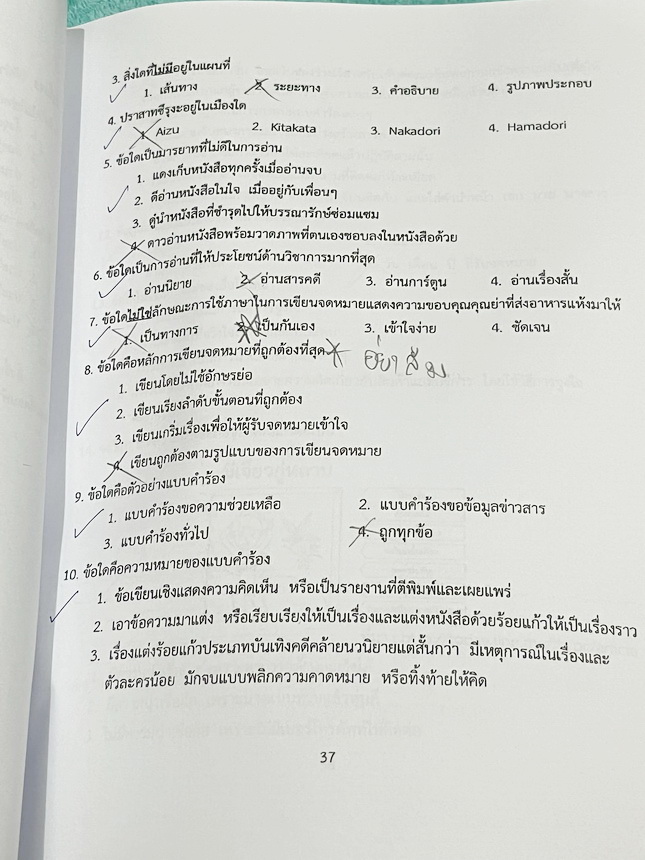 3. สิ่งใดที่ไม่มีอยู่ในแผนที่
1. เส้นทาง 2. ระยะทาง 3. คำอธิบาย 4. รูปภาพประกอบ
4. ปราสาทซึรุงะอยู่ในเมืองใด
1. Aizu 2. Kitakata 3. Nakadori 4. Hamadori
5. ข้อใดเป็นมารยาทที่ไม่ดีในการอ่าน
1. แดงเก็บหนังสือทุกครั้งเมื่ออ่านจบ
2. ดีอ่านหนังสือในใจ เมื่ออยู่กับเพื่อนๆ
3. ตู่นำหนังสือที่ชำรุดไปให้บรรณารักษ์ซ่อมแซม
4. ดาวอ่านหนังสือพร้อมวาดภาพที่ตนเองชอบลงในหนังสือด้วย
6. ข้อใดเป็นการอ่านที่ให้ประโยชน์ด้านวิชาการมากที่สุด
1. อ่านนิยาย 2. อ่านสารคดี 3. อ่านการ์ตูน 4. อ่านเรื่องสั้น
7. ข้อใดไม่ใช่ลักษณะการใช้ภาษาในการเขียนจดหมายแสดงความขอบคุณคุณย่าที่ส่งอาหารแห้งมาให้
1. เป็นทางการ 2. เป็นกันเอง 3. เข้าใจง่าย 4. ชัดเจน
8. ข้อใดคือหลักการเขียนจดหมายที่ถูกต้องที่สุด * อย่าลืม
1. เขียนโดยไม่ใช้อักษรย่อ
2. เขียนเรียงลำดับขั้นตอนที่ถูกต้อง
3. เขียนเกริ่นเรื่องเพื่อให้ผู้รับจดหมายเข้าใจ
4. เขียนถูกต้องตามรูปแบบของการเขียนจดหมาย
9. ข้อใดคือตัวอย่างแบบคำร้อง
1. แบบคำร้องขอความช่วยเหลือ 2. แบบคำร้องขอข้อมูลข่าวสาร
3. แบบคำร้องทั่วไป 4. ถูกทุกข้อ
10. ข้อใดคือความหมายของแบบคำร้อง
1. ข้อเขียนเชิงแสดงความคิดเห็น หรือเป็นรายงานที่ตีพิมพ์และเผยแพร่
2. เอาข้อความมาแต่ง หรือเรียบเรียงให้เป็นเรื่องและแต่งหนังสือด้วยร้อยแก้วให้เป็นเรื่องราว
3. เรื่องแต่งร้อยแก้วประเภทบันเทิงคดีคล้ายนวนิยายแต่สั้นกว่า มีเหตุการณ์ในเรื่องและ
ตัวละครน้อย มักจบแบบพลิกความคาดหมาย หรือทิ้งท้ายให้คิด
37